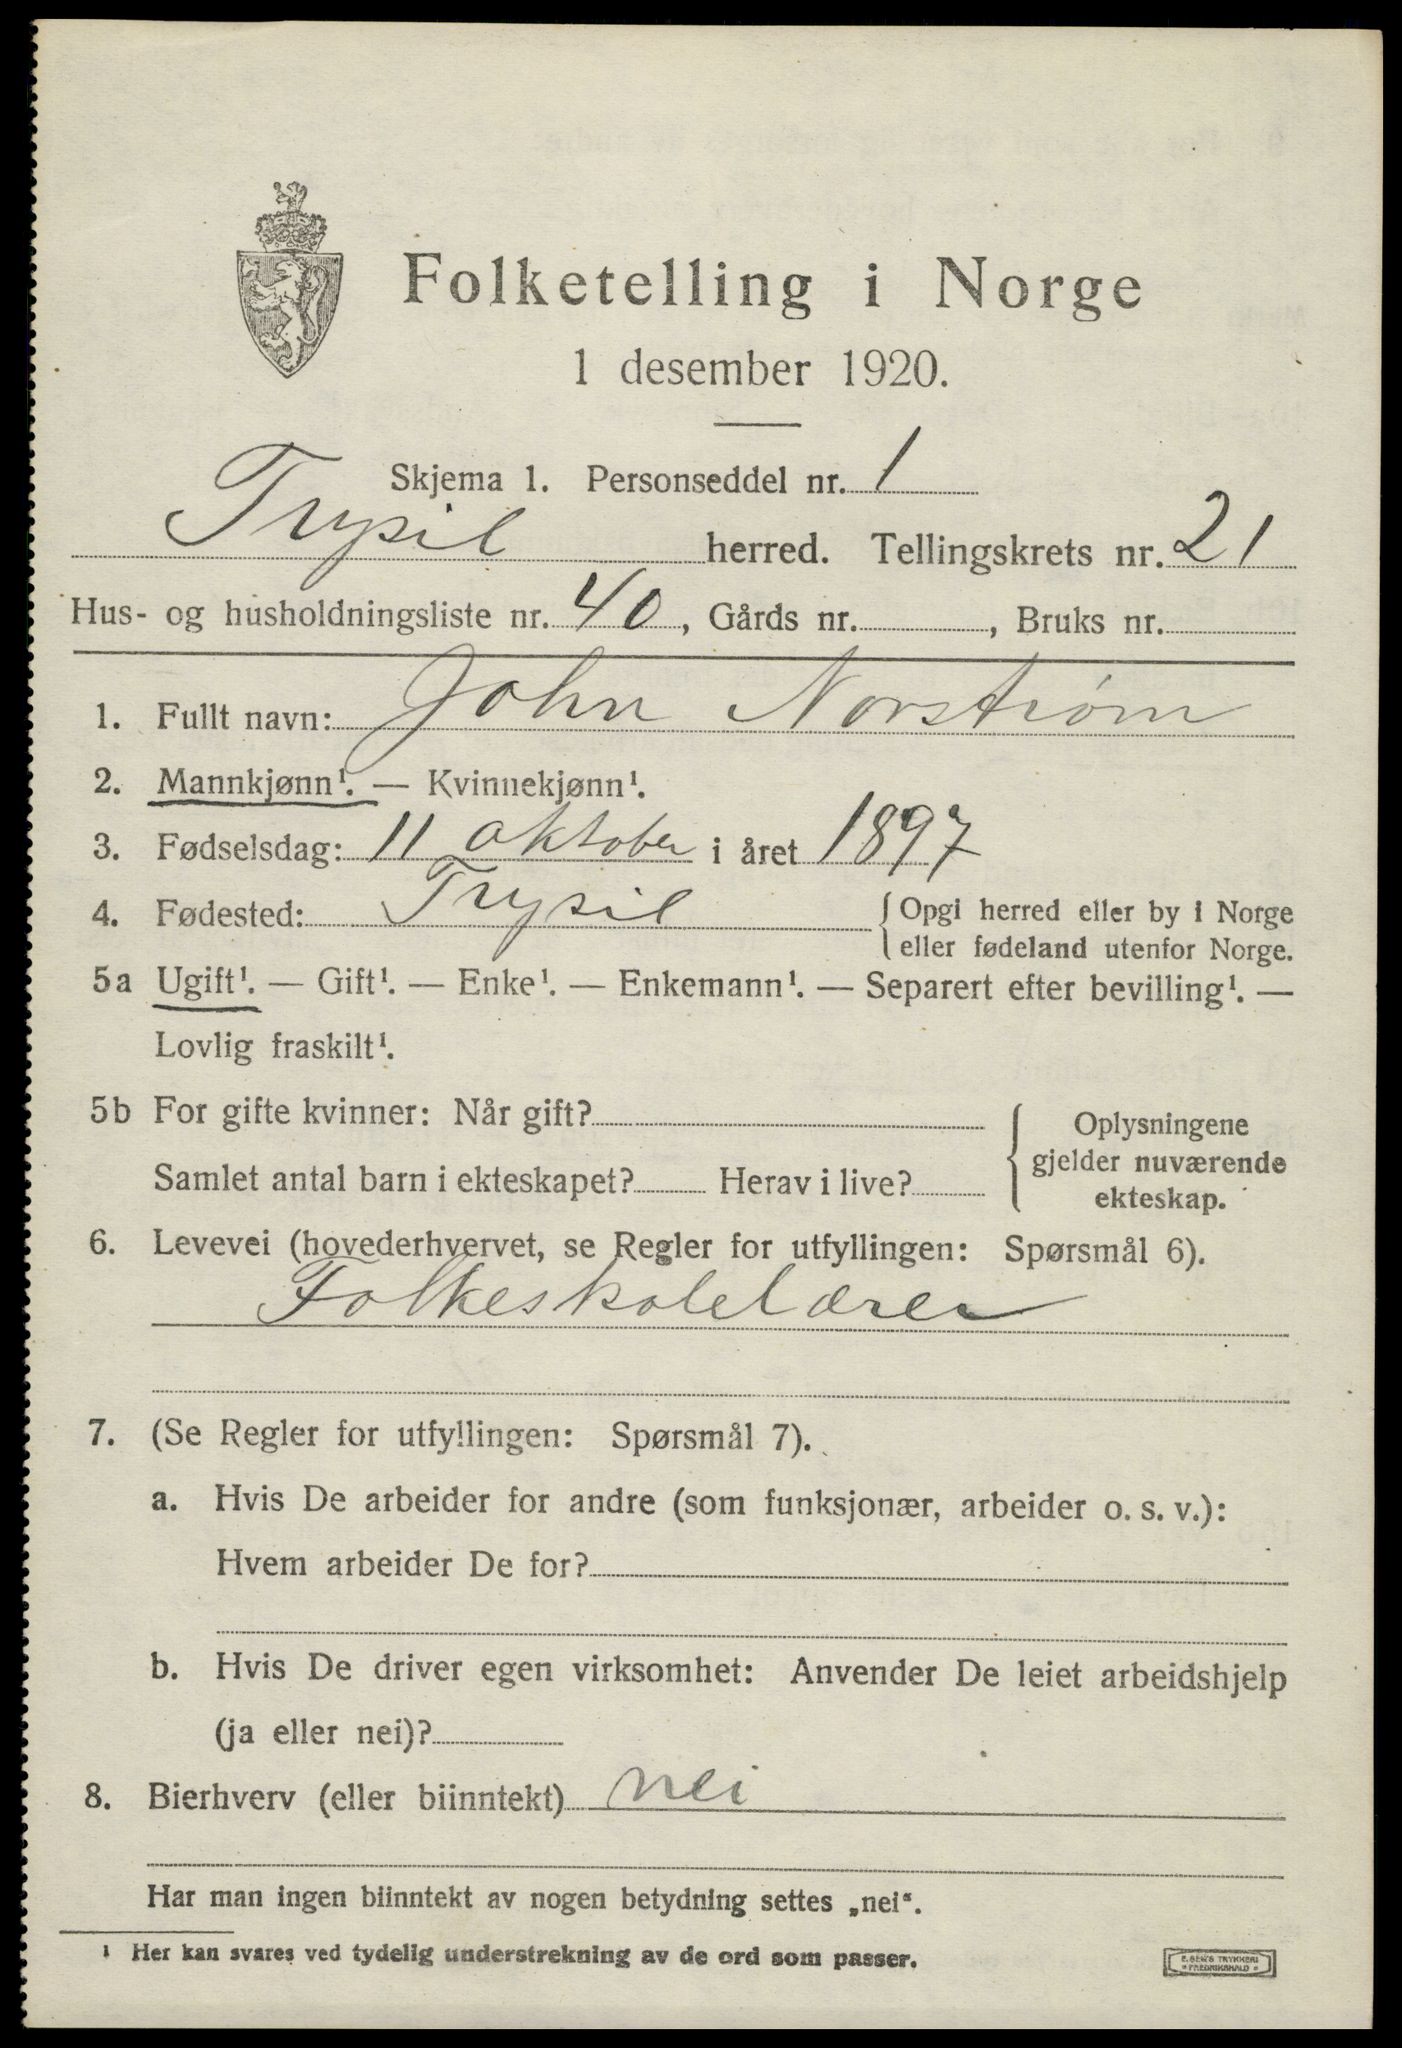 Folketelling i Norge
1 desember 1920.
Skjema 1. Personseddel nr. 1
Trysil herred. Tellingskrets nr. 21
Hus- og husholdningsliste nr. 40, Gårds nr. , Bruks nr.
1. Fullt navn: John Norstrøm
2. Mannkjønn¹. — Kvinnekjønn¹.
3. Fødselsdag: 11 oktober i året 1897
4. Fødested: Trysil { Opgi herred eller by i Norge
eller fødeland utenfor Norge.
5a Ugift¹. — Gift¹. — Enke¹. — Enkemann¹. — Separert efter bevilling¹. —
Lovlig fraskilt¹.
5b For gifte kvinner: Når gift? { Oplysningene
gjelder nuværende
Samlet antal barn i ekteskapet? Herav i live? ekteskap.
6. Levevei (hovederhvervet, se Regler for utfyllingen: Spørsmål 6).
Folkeskolelærer
7. (Se Regler for utfyllingen: Spørsmål 7).
a. Hvis De arbeider for andre (som funksjonær, arbeider o. s. v.):
Hvem arbeider De for?
b. Hvis De driver egen virksomhet: Anvender De leiet arbeidshjelp
(ja eller nei)?
8. Bierhverv (eller biinntekt) nei
Har man ingen biinntekt av nogen betydning settes „nei“.
¹ Her kan svares ved tydelig understrekning av de ord som passer.
E. SEM'S TRYKKERI
FREDRIKSHALD